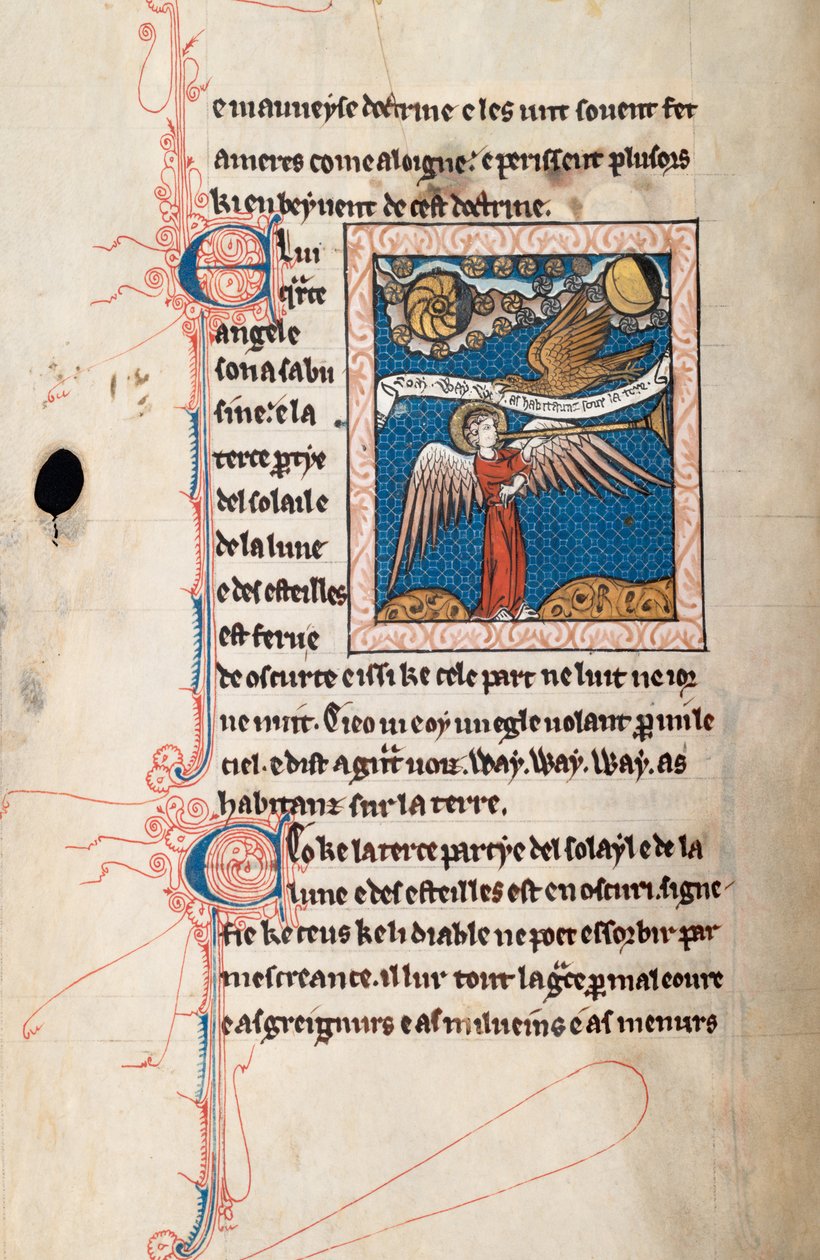 e mauueyse doctrine e les unt souent fet
ameres come aloigne. e perissent plusors
ki en beyuent de cest doctrine.
E lui
qrte
angele
sona sa bu
sine. e la
terce ptye
del solail e
de la lune
e des esteilles
est ferue
Way. Way. Way. as habitaunz sour la tere.
de oscurte eissi ke cele part ne luit ne ior
ne nuit. E ieo ui e oy un egle uolant p mi le
ciel. e dist a gnt uoiz. Way. Way. Way. as
habitanz sur la terre.
Co ke la terce partye del solayl e de la
lune e des esteilles est en oscuri. signe
fie ke ceus ke li diable ne poet essorbir par
mescreance. il lur tout la gce p mal eoure
e as greignurs e as milueins e as menurs